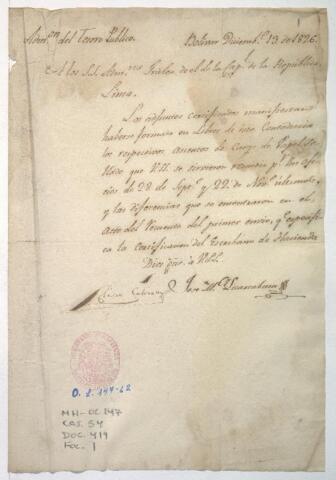 Admon del Tesoro Publico.
Bolivar Diciembe 13 de 1826.
A los S.S. Admres Grales de el de la Capl de la República.
Lima.
Los adjuntos certificados manifiestan
haberse formado en Libros de esta Contaduria
los respectivos asientos de Cargo de Papel Se
llado que VSS. se sirvieron remitir pr los ofi
cios de 28 de Sepe y 22 de Nove ultimo,
y las diferencias que se encontraron en el
acto del recuento del primer envio, qe especifi
ca la certificacion del Escribano de Hacienda
Dios gue. á VSS.
José Ml
O.L. 147-62
MH-OL 147
CAJ. 54
DOC. 419
FOL. 1